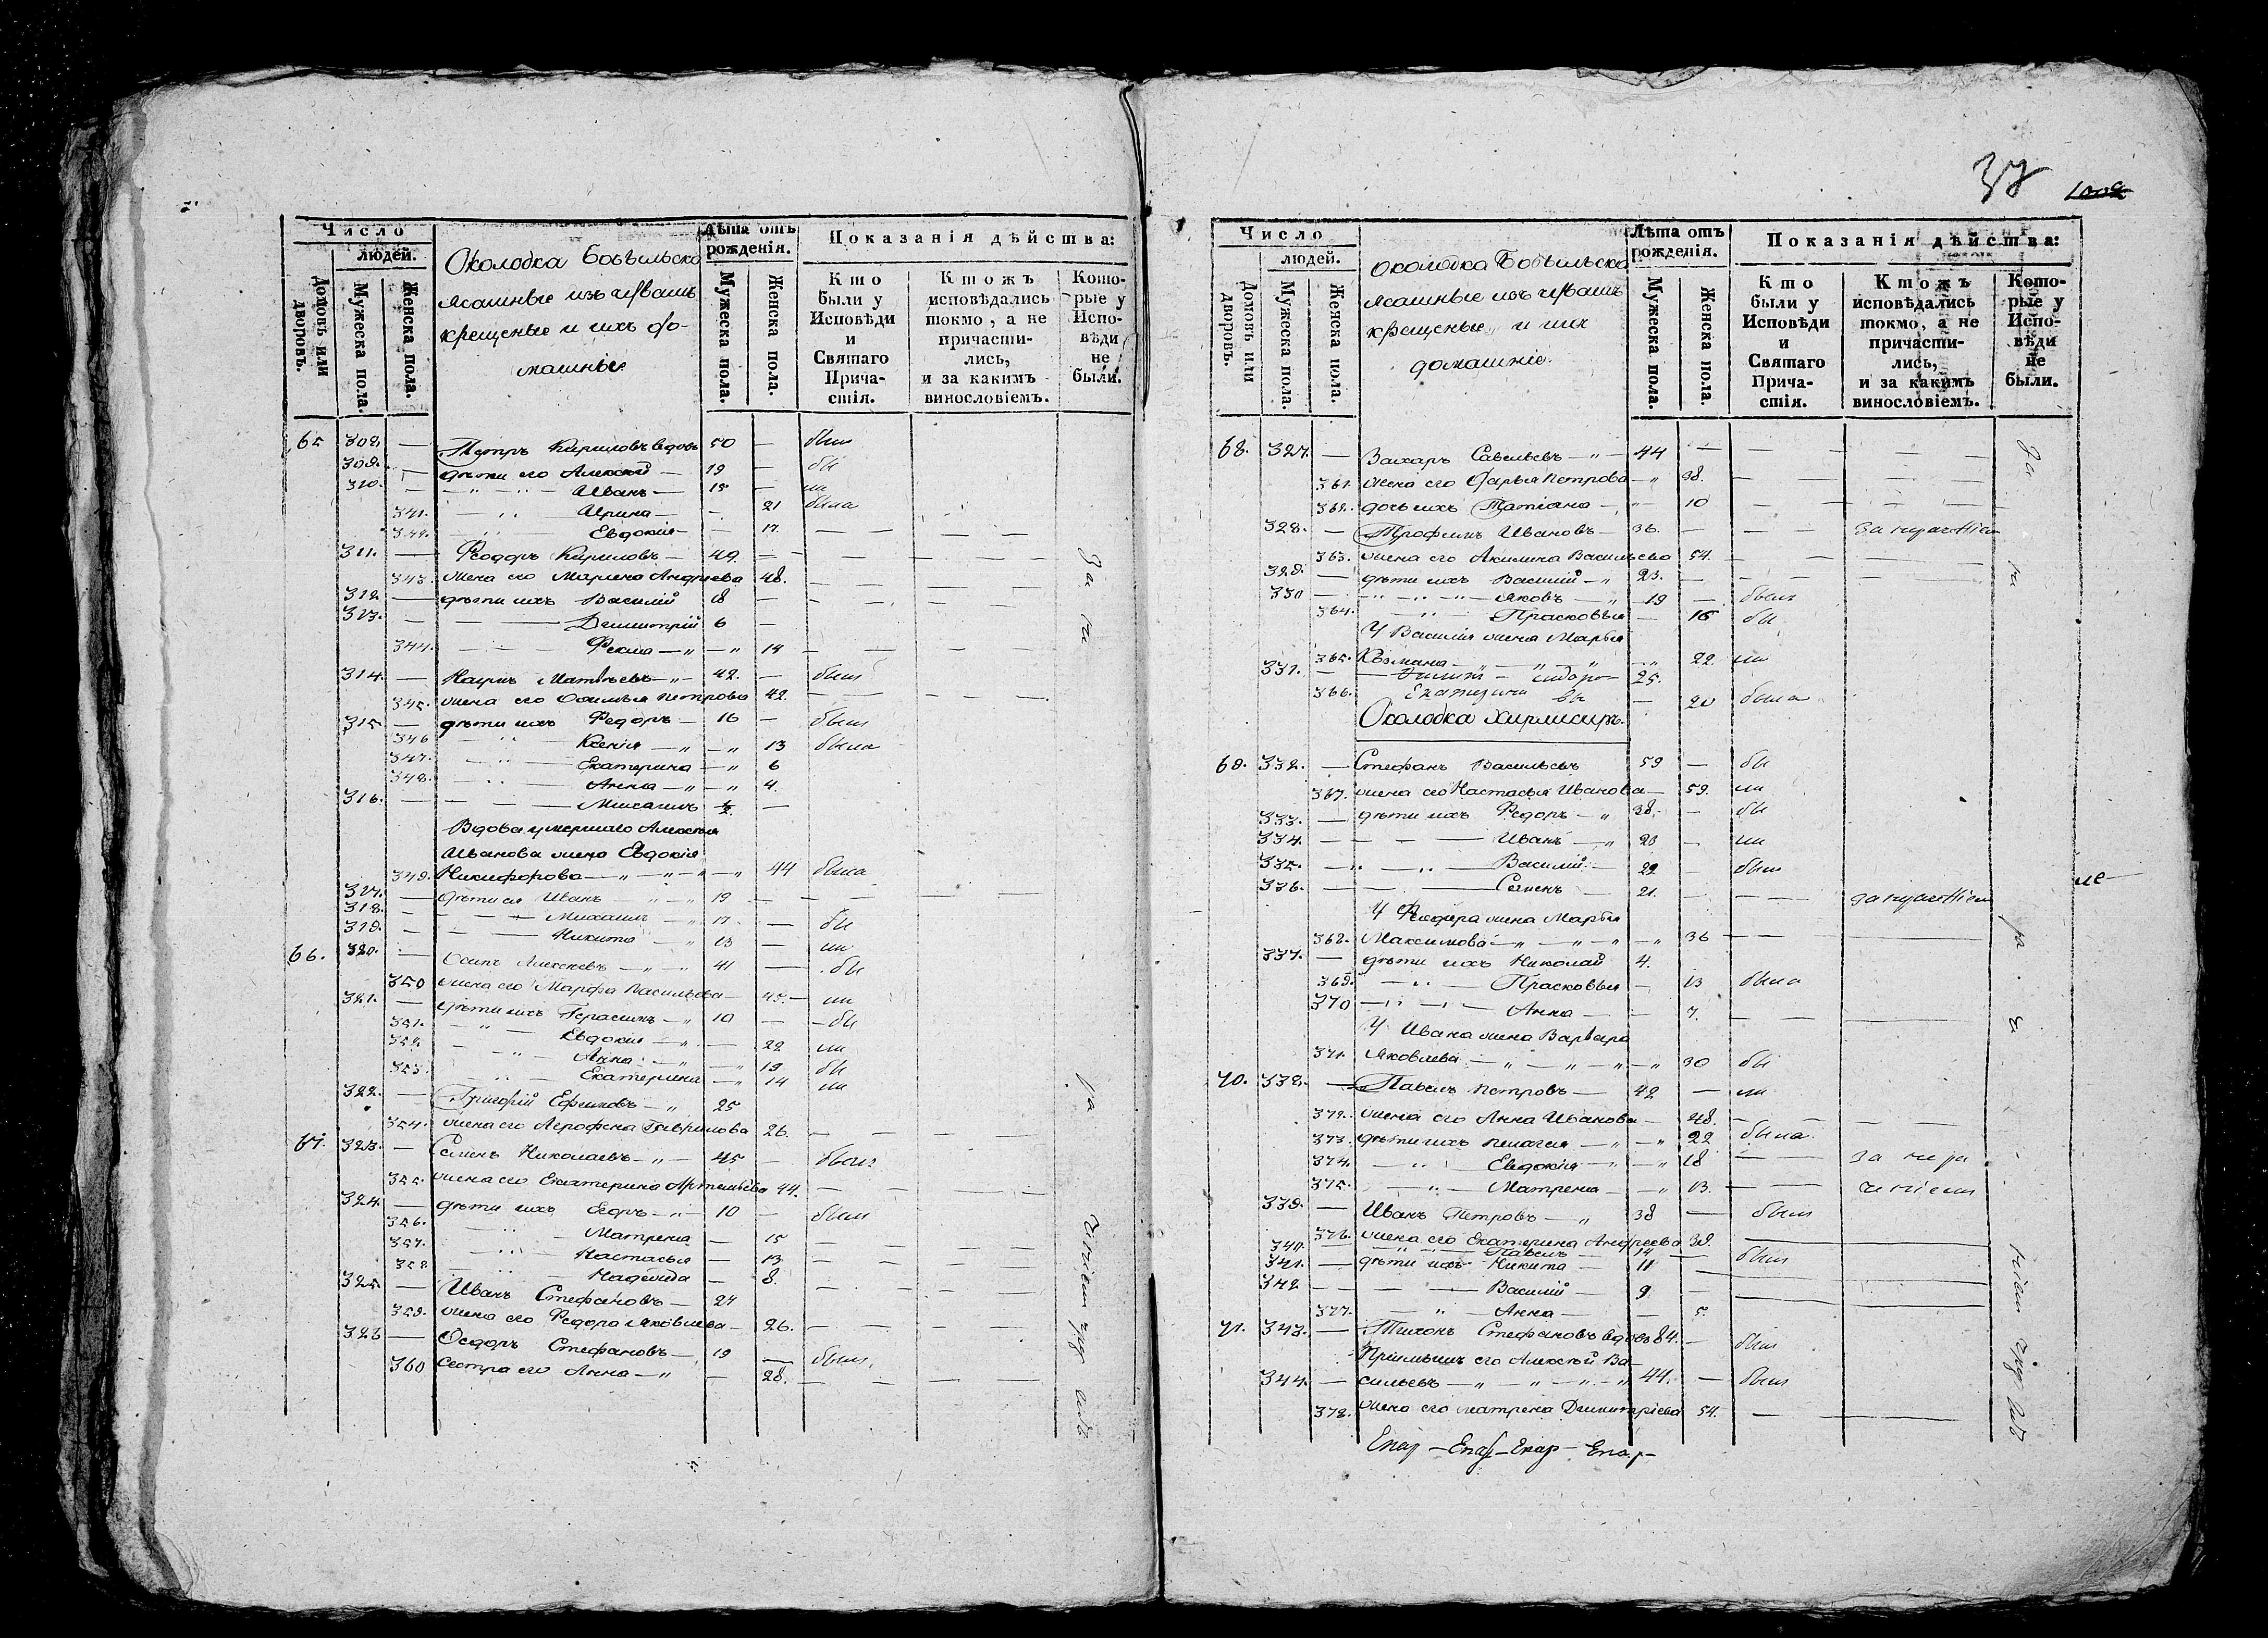 Число
людей.
Домовъ или дворовъ.
Мужеска пола.
Женска пола.
Околодка
ясашные изъ чувашъ
крещеные и ихъ до-
машніе
Лѣта отъ рожденія.
Мужеска пола.
Женска пола.
Показанія дѣйства:
Кто были у Исповѣди и Святаго Прича- стія.
Ктожъ исповѣдались токмо, а не причасти- лись, и за какимъ винословіемъ.
Кото- рые у Испо- вѣди не были.
65 308. — Петръ Кириловъ вдовъ 50 — былъ
309. — дѣти его Алексей — 19 — бы
310. — — Иванъ — 15 — ли
341. — Ирина — — 21 была
342. — Евдокія — — 17 — — —
311. — Феодоръ Кириловъ — 49. — — — —
343. жена его Марина Андреева 48. — — —
312. — дѣти ихъ Василій 18 — — — —
313. — — Димитрій 6 —
344. — Фекла — — 14 — — —
314. — Наумъ Матвѣевъ — 42. — былъ
345. жена его Петрова 42. — — —
315 — дѣти ихъ Федоръ — 16 — былъ
346 — Ксенія — — 13 была
347. — Екатерина — — 6
348. — Анна — — 4.
316. — — Михаилъ ½ —
Вдова умершаго Алексея
Иванова жена Евдокія
349. Никифорова — — 44 была
317. — дѣти ея Иванъ — 19 — — — —
318. — — Михаилъ — 17 — бы
319. — — Никита — 13 — ли
66. 320. — Осипъ Алексеевъ — 41 — бы
350 жена его Марфа Васильева — 45. — ли
321. — дѣти ихъ Герасимъ — 10 — бы
351. — Евдокія — — 22 ли
352. — Анна — — 19 бы
353. — Екатерина — — 14 ли
322. — Григорій Ефимовъ — 25
354. жена его Агрофена Гаврилова 26. — — —
67. 323. — Семенъ Николаевъ — 45 — былъ
355. жена его Екатерина 44. — — —
324. — дѣти ихъ Егоръ — 10 — былъ
356. — Матрена — 15 — — —
357. — Настасья — 13 — — —
358 — Надежда — 8. — — —
325. — Иванъ Стефановъ — 24
359. жена его Федора Яковлева — 26. — — —
326 — Федоръ Стефановъ — 19 — былъ
360 сестра его Анна — — 28. — — —
За
37 1002
Число
людей.
Домовъ или дворовъ.
Мужеска пола.
Женска пола.
околодка
ясашные изъ чувашъ
крещеные и ихъ
домашніе
Лѣта отъ рожденія.
Мужеска пола.
Женска пола.
Показанія дѣйства:
Кто были у Исповѣди и Святаго Прича- стія.
Ктожъ исповѣдались токмо, а не причасти- лись, и за какимъ винословіемъ.
Кото- рые у Испо- вѣди не были.
68. 327. — Захаръ Савельевъ — 44 — — — —
361. жена его Дарья Петрова — 38. — — —
362. дочь ихъ Татіана — 10 — — —
328. — Трофимъ Ивановъ — 36. — —
363. жена его Акилина Васильева 54. — —
329. — дѣти ихъ Василій — 23. — — — —
330 — — Яковъ — 19 — былъ
364. — Прасковья — 16 бы
У Василія жена Марья
365. Козмина — — 22. ли
331. — 25.
366. Екатерина — 20 была
Околодка Хирлисиръ.
69. 332. — Стефанъ Васильевъ 59 — бы
367. жена его Настасья Иванова — 59. ли
333. — дѣти ихъ Федоръ — 38. — бы
334. — — Иванъ — 28 — ли
335. — — Василій — 22 — былъ
336. — — Семенъ — 21. — —
У Федора жена Марья
368. Максимова — — 36 — —
337. — дѣти ихъ Николай 4.
369. — Прасковья — 13 была
370 — Анна — — 7. — —
У Ивана жена Варвара
371. Яковлева — — 30 бы
70. 338. — Павелъ Петровъ — 42 — ли
372. жена его Анна Иванова — 48. — —
373. дѣти ихъ Пелагея — — 22 была
374. — Евдокія — — 18 —
375. — Матрена — — 13. —
339. — Иванъ Петровъ — 38 — былъ
376. жена его Екатерина Андреева 38. — —
340. — Павелъ — 14 — былъ
341. — дѣти ихъ Никита — 11 — —
342 — — Василій — 9. — —
377. — Анна — — 5. — —
71. 343. — Тихонъ Стефановъ вдовъ 84. — былъ
Пріимышъ его Алексѣй Ва-
344. — сильевъ — 44. — былъ
378. жена его Матрена Димитріева 54. — —